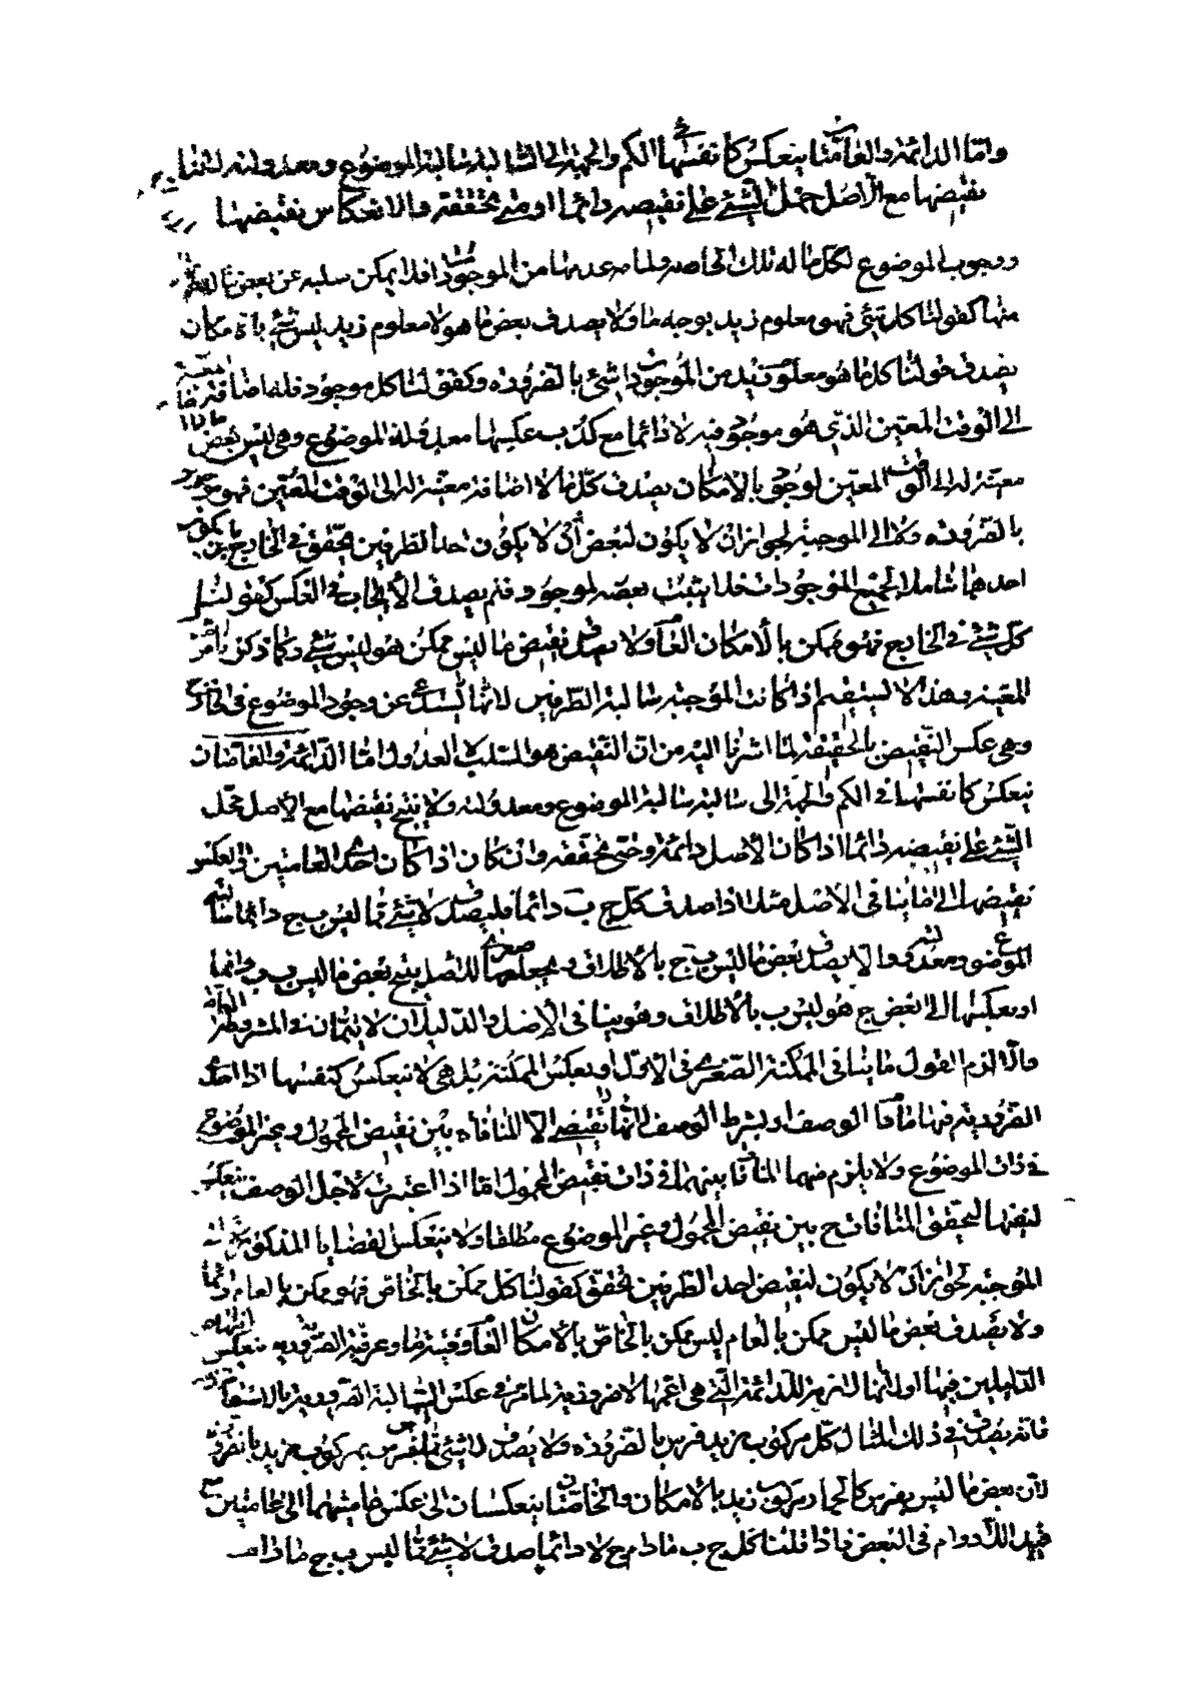 واما الدائمة والعامتان ينعكس كل نفسها في الكم والجهة الى السالبة سالبة الموضوع ومعدولته لانتاج
نقيضها مع الاصل حمل الشئ على نقيضه دائما او متى تحققه والانعكاس نقيضها
ووجوب الموضوع لكل ما له تلك الخاصة ولما عدمها من الموجودات فلا يمكن سلبه عن بعض
منها كقولنا كل شئ فهو معلوم زيد بوجه ما ولا يصدق بعض ما هو لا معلوم زيد ليس بشئ بأي مكان
يصدق قولنا كل ما هو معلوم زيد من الموجودات شئ بالضرورة وكقولنا كل موجود فله اضافة معينة
الى الوقت المعين الذي هو موجود فيه لا دائما مع كذب عكسها معدولة الموضوع وهي ليس بعض ما لا
معينة له الى الوقت المعين لوجود بالامكان يصدق كل ما لا اضافة معينة له الى الوقت المعين فهو موجود
بالضرورة ولا الى الموجبة لجواز ان لا يكون لبعض ان لا يكون احد الطرفين تحقق في الخارج بان يكون
احدهما شاملا لجميع الموجودات فلا يثبت نقيضه لموجود فلم يصدق الايجاب في العكس كقولنا
كل شئ في الخارج فهو ممكن بالامكان العام ولا يصدق نقيض ما ليس ممكن هو ليس بشئ وكما ذكر بامر
المعينة وهذا لا يستقيم اذا كانت الموجبة سالبة الطرفين لانها لا تستدعي عن وجود الموضوع في الخارج
وهي عكس النقيض بالحقيقة لما اشرنا اليه من ان النقيض هو السلب لا العدول اما الدائمة والعامتان
ينعكس كل نفسها في الكم والجهة الى سالبة سالبة الموضوع ومعدولته ولا ينتج نقيضها مع الاصل حمل
الشئ على نقيضه دائما اذا كان الاصل دائمة وحتى تحققه وان كان اذا كان احدى العامتين والعكس
نقيضها الى ما ينافي الاصل مثلا اذا صدق كل ج ب دائما فليصدق لا شئ مما ليس ب ج دائما سالبة
الموضوع ومعدولته والا يصدق بعض ما ليس ب ج بالاطلاق ونجعلها صغرى للاصل ينتج بعض ما ليس ب ب دائما
او بعكسها الى بعض ج هو ليس ب بالاطلاق وهو ينافي الاصل والدليلان لا يتمان في المشروطة العامة
والا لزم القول ما ينافي الممكنة الصغرى في الاول او بعكس الممكنة بل هي لا تنعكس كنفسها اذا اخذ
الضرورية فيها ما دام الوصف او بشرط الوصف لانها نقيضي الا المنافاة بين نقيض المحمول وبين الموضوع
في ذات الموضوع ولا يلزم منهما المنافاة بينهما في ذات نقيض المحمول اما اذا اعتبرت لاجل الوصف ينعكس
لنفسها لتحقق المنافاة ح بين نقيض المحمول وعين الموضوع مطلقا ولا ينعكس القضايا المذكورة الى
الموجبة لجواز ان لا يكون لنقيض احد الطرفين تحقق كقولنا كل ممكن بالخاص فهو ممكن بالعام دائما
ولا يصدق بعض ما ليس ممكن بالعام ليس ممكن بالخاص بالامكان العام وقتية ما وعرفية الضرورية ينعكس
الدليلين فيها او لانها لازمة للدائمة التي هي اعمها لا ضرورية لما مر في عكس السالبة الضرورية بالاستقامة
فانه يصدق في ذلك المثال كل مركوب زيد فرس بالضرورة ولا يصدق لا شئ مما ليس بفرس بمركوب زيد بالضرورة
لان بعض ما ليس بفرس كالحمار مركوب زيد بالامكان والخاصتان ينعكسان الى عكس عامتيهما الى عامتين مع
قيد اللادوام في البعض فاذا قلنا كل ج ب ما دام ج لا دائما صدق لا شئ مما ليس ب ج ما دام